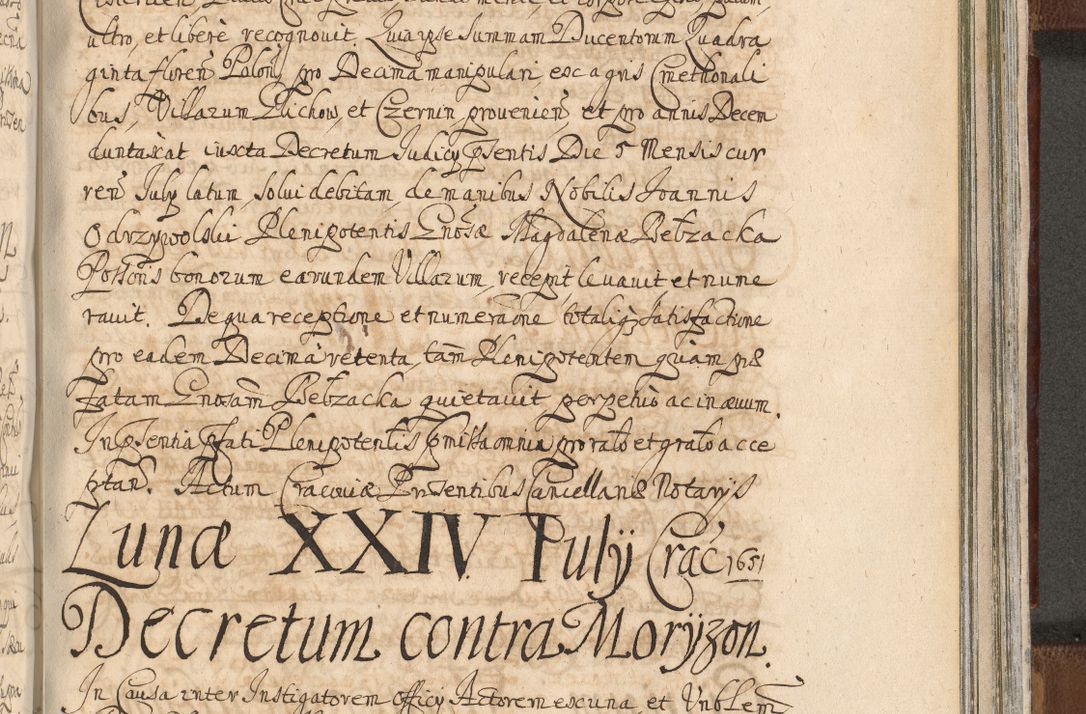 ultro, et libere recognovit. Quia ipse summam Ducentorum Quadra
ginta floren Polon, pro Decima manipulari, ex agris Cmethonali
bus, Villarum Plichow, et Czernin, provenien, et pro annis Decem
duntaxat iuxta Decretum Iudicij pñtis Die 5 Mensis cur
ren July latum, solui debitam, de manibus Nobilis Ioannis
Odrzywolski Plenipotentis Gnosæ Magdalenæ Bebzacka
Possoris bonorum earundem Villarum, recepit levavit et nume
ravit. De qua receptione et numeraone totaliq satisfactione
pro eadem Decima retenta, tam Plenipotentem quam præ
fatam Gnosam Bebzacka quietavit perpetuo ac in ævum.
In pñsentia pfati Plenipotentis pmissa omnia pro rato et grato acce
ptan. Actum Cracoviæ Præsentibus Cancellariæ Notarijs
Lunæ XXIV Iulij Crac 1651
Decretum contra Moryson.
In Causa inter Instigatorem Officij Actorem ex una, et Vnblem